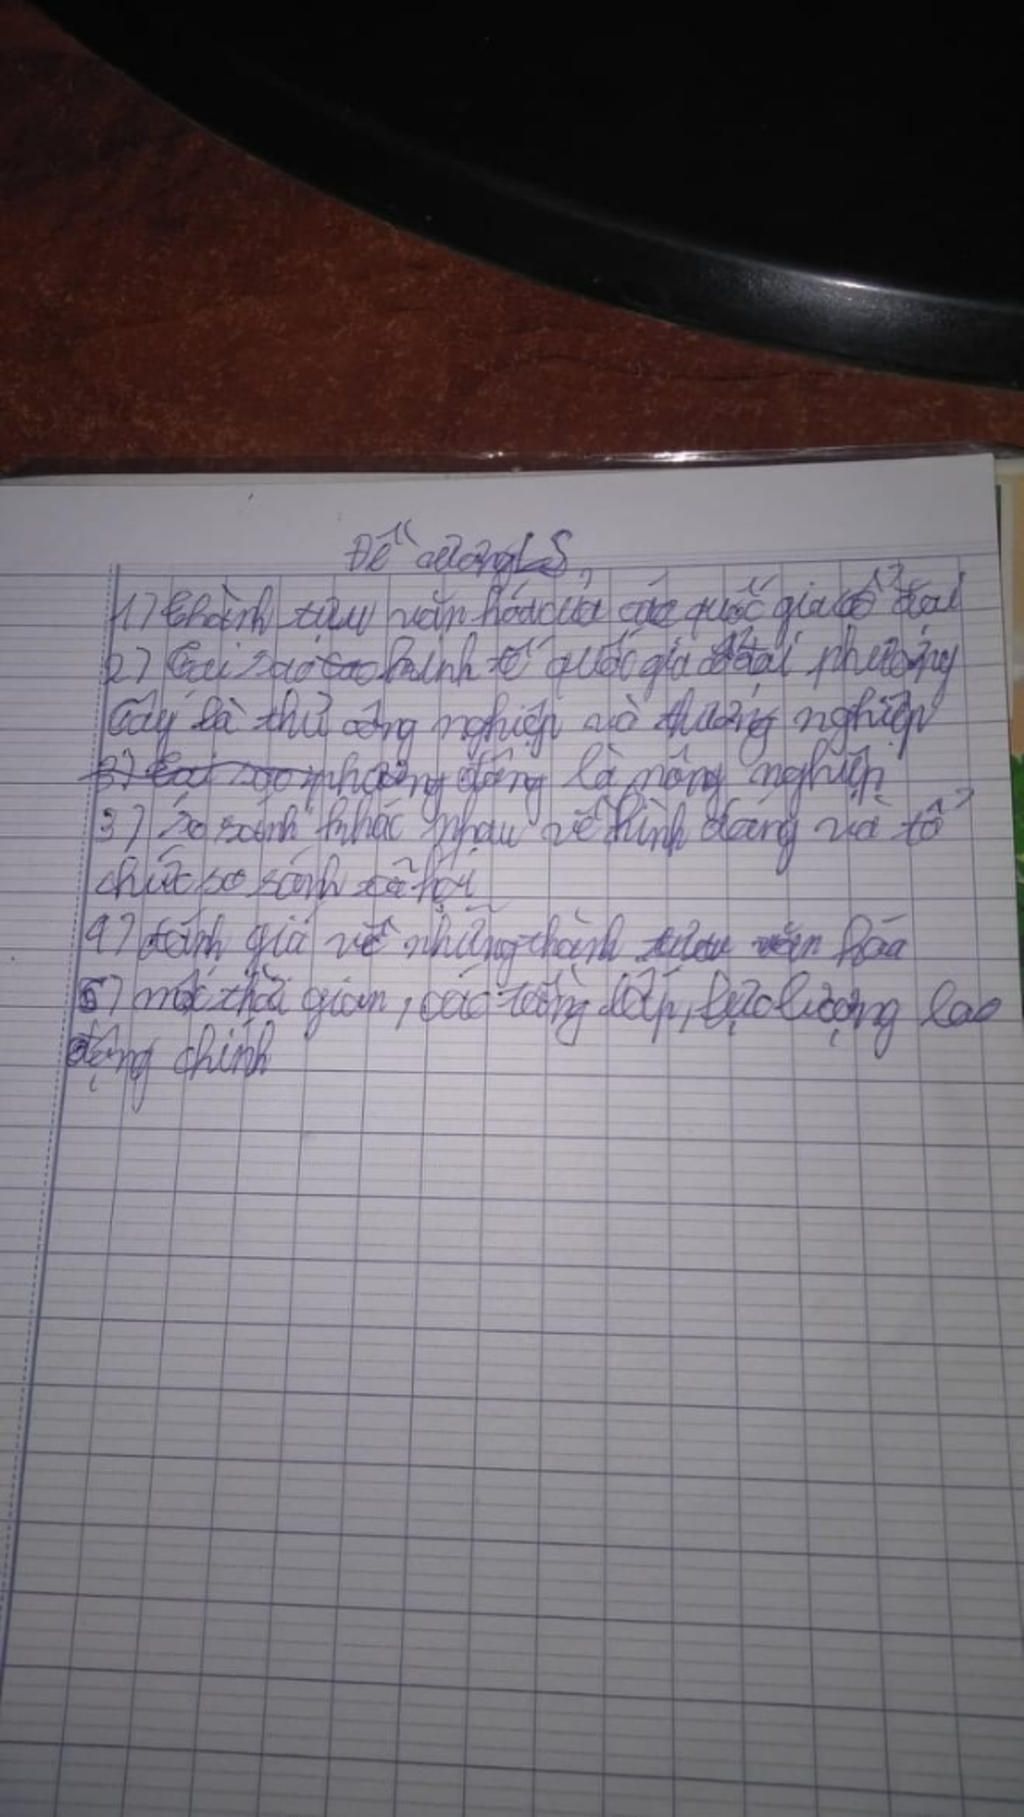 Đề cương LS
1) Thành tựu văn hóa của các quốc gia cổ đại
2) Tại sao kinh tế quốc gia cổ đại phương
Tây là thủ công nghiệp và thương nghiệp
3) Tại sao phương đông là nông nghiệp
3) So sánh khác nhau về hình dáng và tổ
chức so sánh xã hội
4) đánh giá về những thành tựu văn hóa
5) mốc thời gian, các tầng lớp, lực lượng lao
động chính